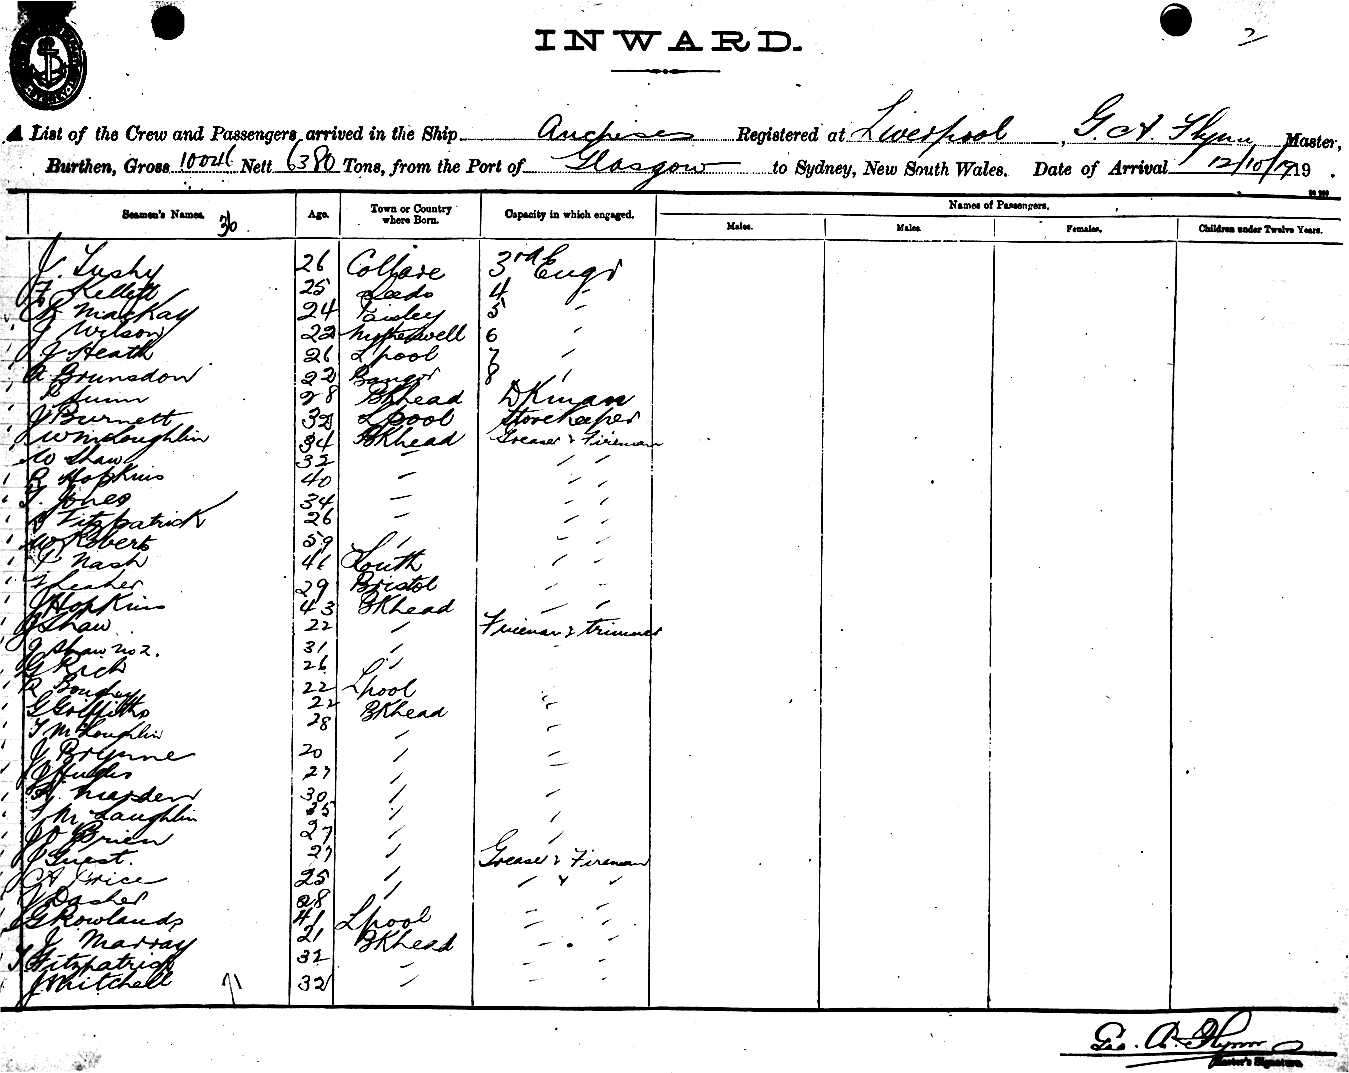 INWARD.
2
A List of the Crew and Passengers arrived in the Ship Anchises Registered at Liverpool, G. A. Flynn Master,
Burthen, Gross 10046 Nett 6380 Tons, from the Port of Glasgow to Sydney, New South Wales. Date of Arrival 12/10/17 19 .
Seamen's Names. 36 Age. Town or Country where Born. Capacity in which engaged. Names of Passengers.
Males. Males. Females. Children under Twelve Years.
J. Lushy 26 3rd Engr
Kellett 25 Leeds 4 "
R MacKay 24 Paisley 5 "
J Wilson 22 6
J Heath 26 Lpool 7 "
A Brunsdon 22 Bangor 8 "
28 BKhead DKman
J Burnett 32 Lpool Storekeeper
W McLoughlin 34 BKhead Greaser & Fireman
W Shaw 32 " " "
R Hopkins 40 " " "
T. Jones 34 " " "
Fitzpatrick 26 " " "
W Roberts 59 " " "
Nash 41 Louth " "
29 Bristol " "
J Hopkins 43 BKhead " "
J Shaw 22 " Fireman & trimmer
J Shaw no 2. 31 "
G Rich 26 "
R Boughey 22 Lpool "
G Griffiths 22 BKhead "
T McLoughlin 28 " "
J Brynne 20 " "
J Hughes 27 "
Marsden 30 " "
T McLaughlin 35 " "
J O'Brien 27 " "
J Guest. 27 " Greaser & Fireman
A Price 25 " " & "
J Dasher 28 " " "
G Rowlands 41 Lpool " "
J Murray 21 BKhead " "
T Fitzpatrick 32 " " "
J Mitchell 32 " " "
Geo. A. Flynn
Master's Signature.